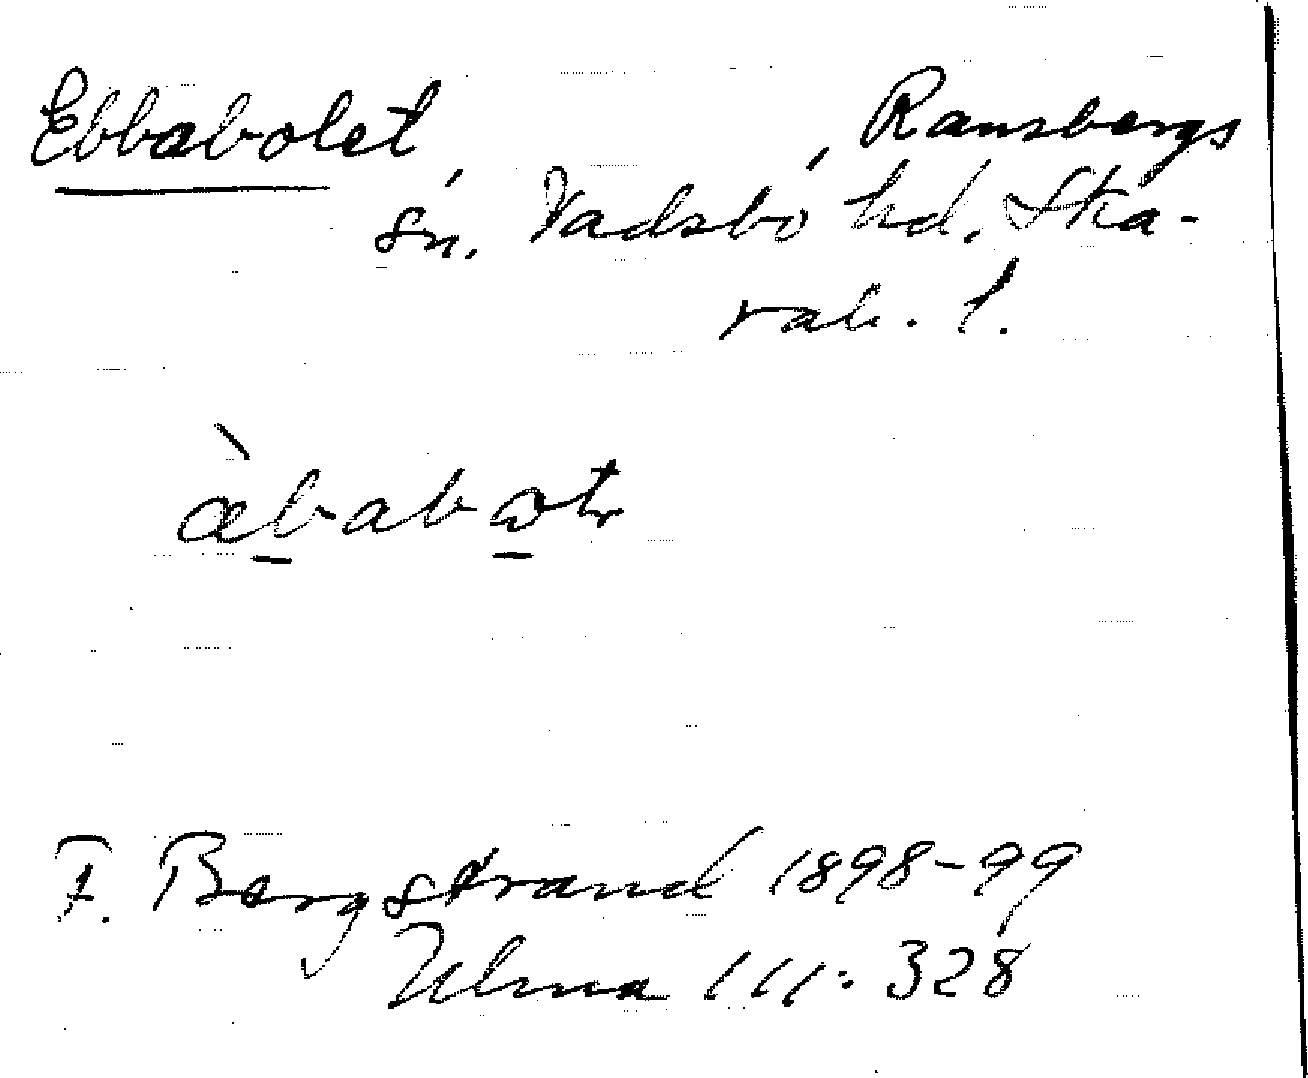 Ebbabolet, , Ransbergs
sn. Vadsbo hd. Ska-
rab. l.
F. Bergstrand 1898-99
Ulma 111:328